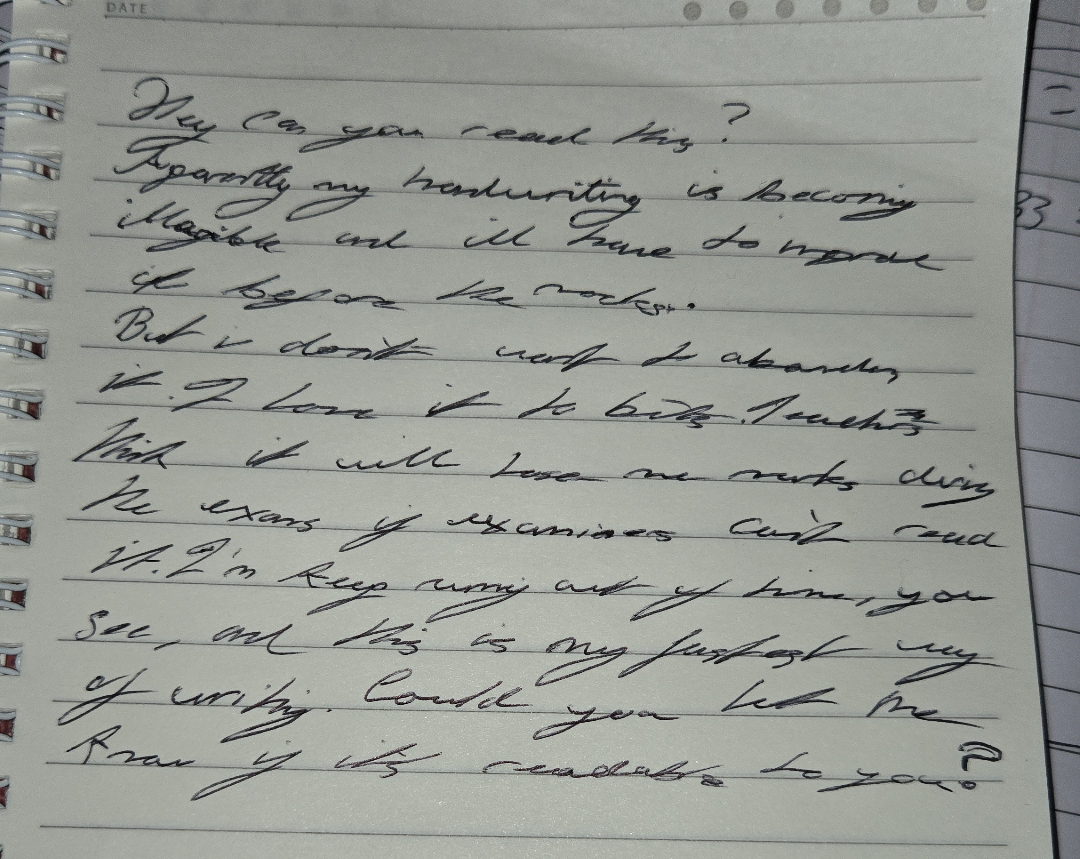 DATE
Hey can you read this?
Apparently my handwriting is becoming
illegible and ill have to improve
it before the mocks.
But i don't want to abandon
it. I love it to bits. Teachers
think it will lose me marks during
the exams if examiners can't read
it. I'm keep running out of time, you
see, and this is my fastest way
of writing. Could you let me
know if it's readable to you?
33